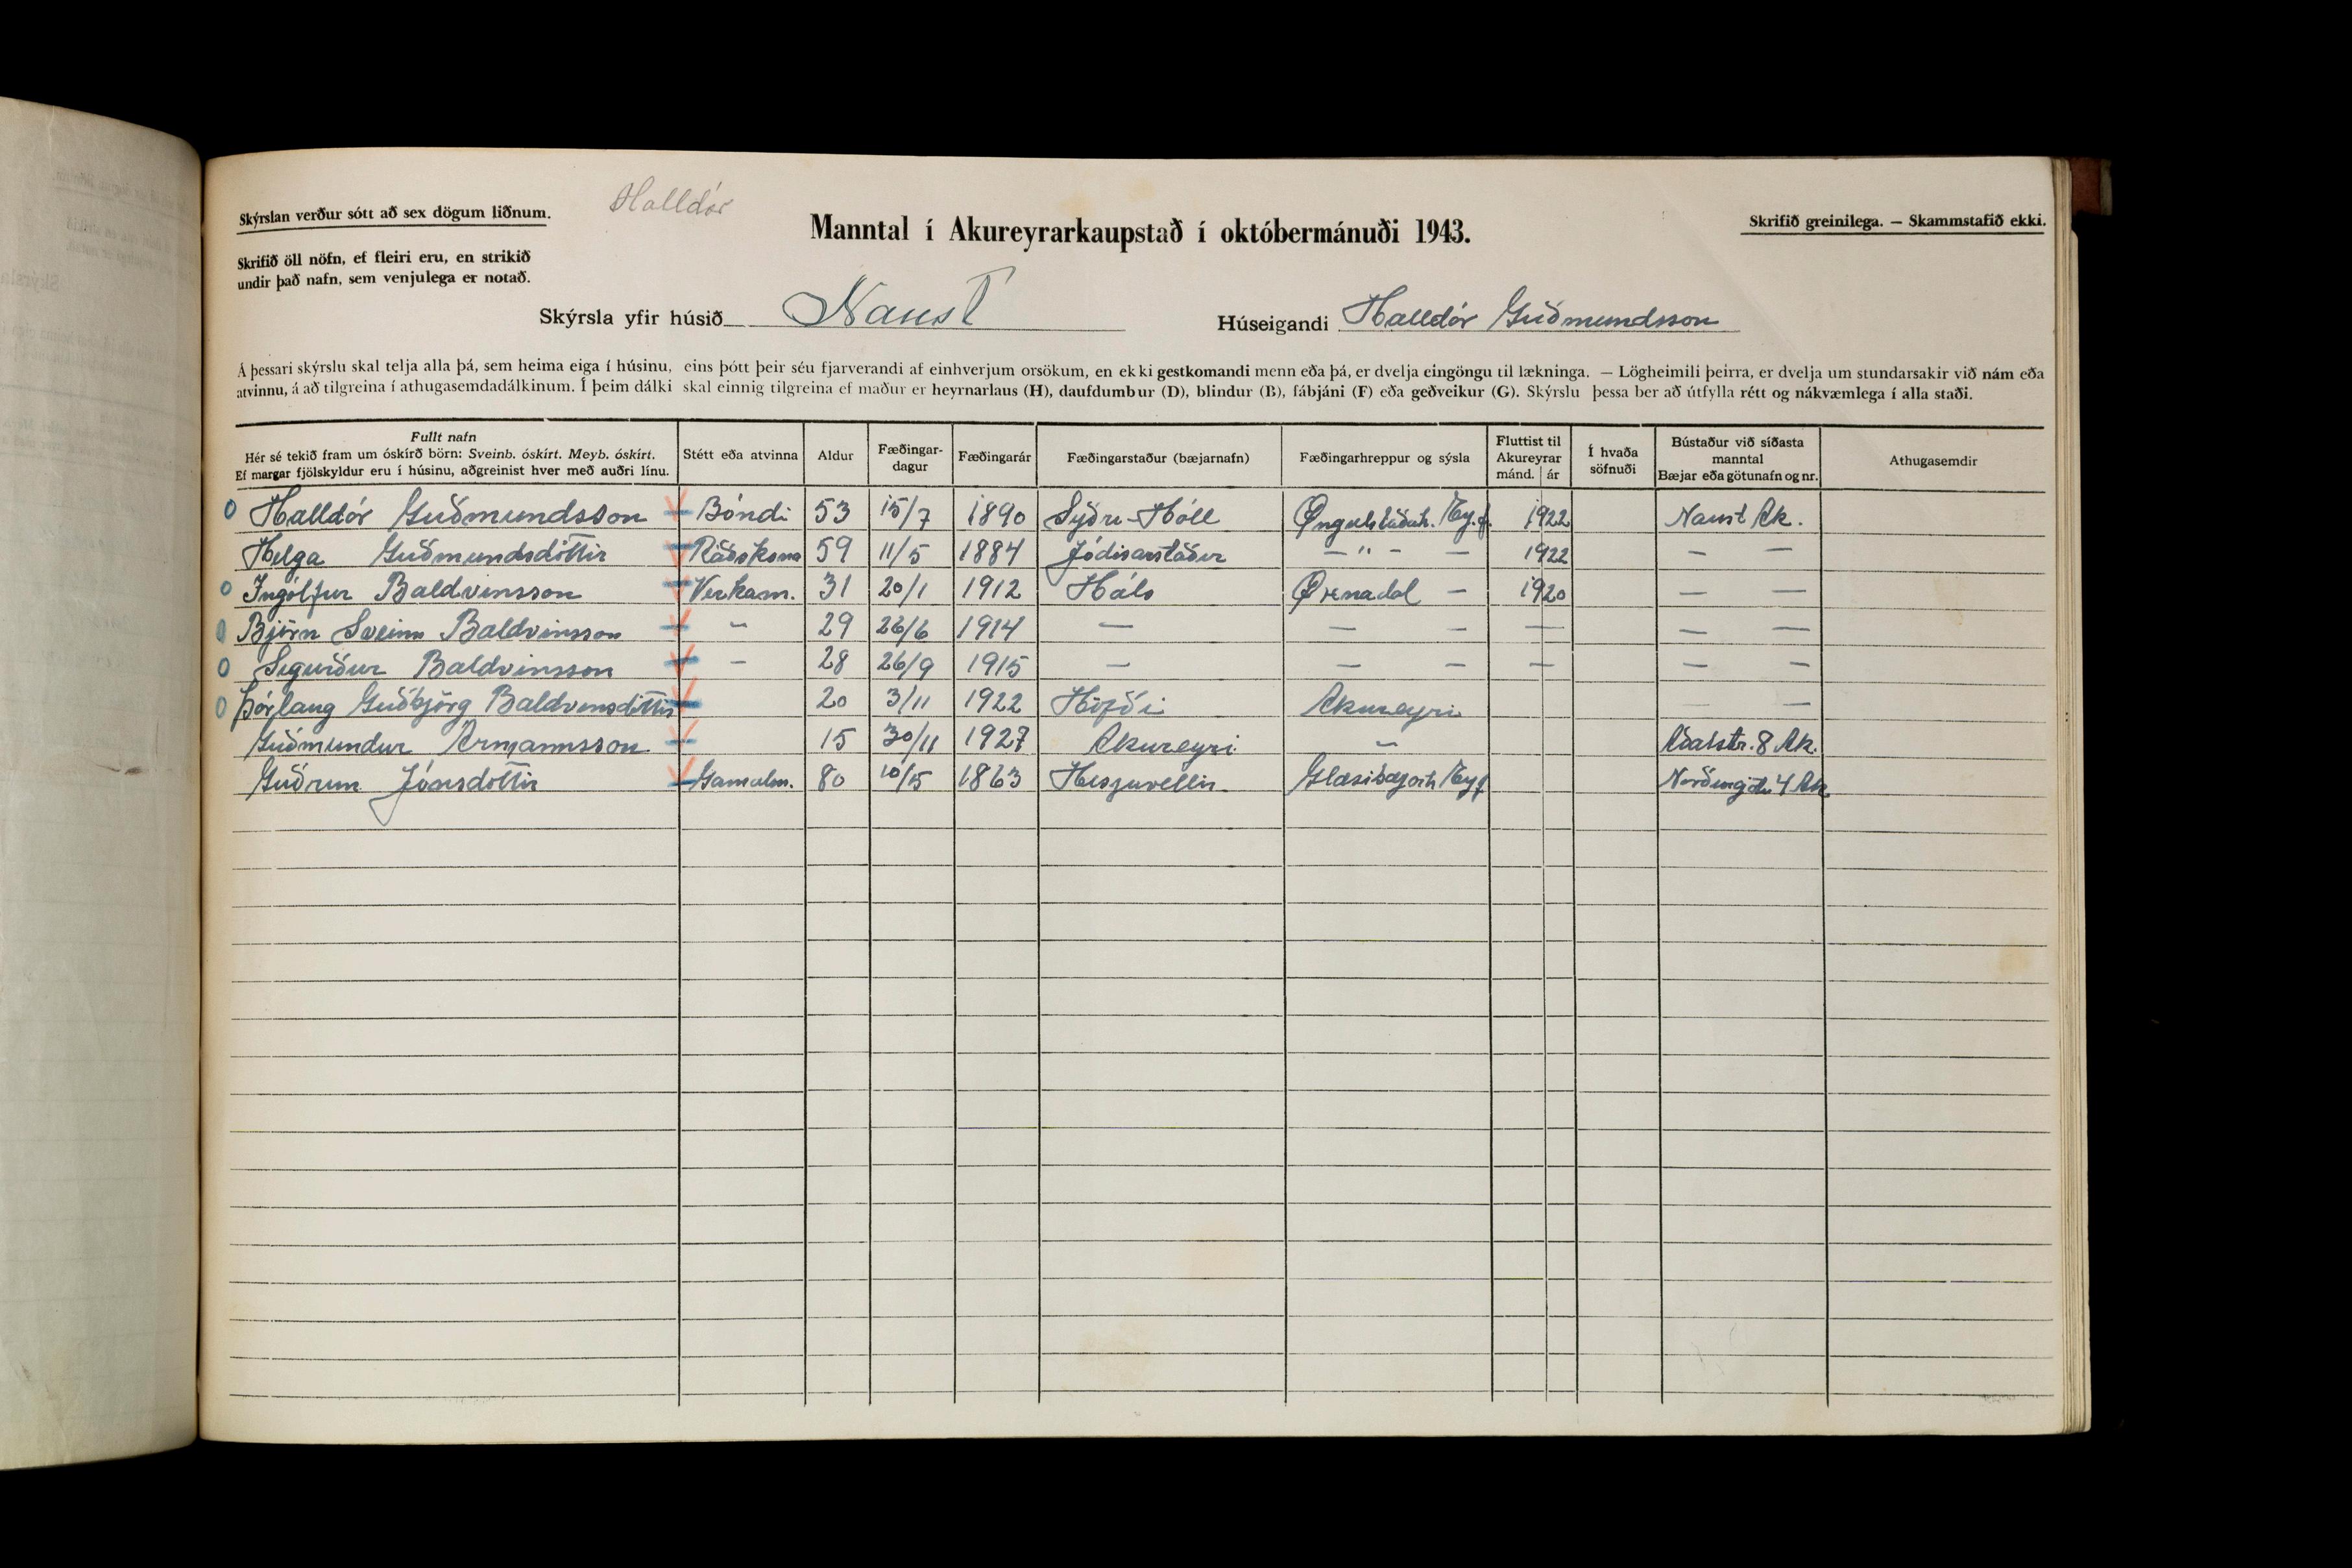 Skýrslan verður sótt að sex dögum liðnum.
Halldór
Manntal í Akureyrarkaupstað í októbermánuði 1943.
Skrifið greinilega. — Skammstafið ekki.
Skrifið öll nöfn, ef fleiri eru, en strikið
undir það nafn, sem venjulega er notað.
Skýrsla yfir húsið Naust Húseigandi Halldór Guðmundsson
Á þessari skýrslu skal telja alla þá, sem heima eiga í húsinu, eins þótt þeir séu fjarverandi af einhverjum orsökum, en ekki gestkomandi menn eða þá, er dvelja eingöngu til lækninga. — Lögheimili þeirra, er dvelja um stundarsakir við nám eða
atvinnu, á að tilgreina í athugasemdadálkinum. Í þeim dálki skal einnig tilgreina ef maður er heyrnarlaus (H), daufdumbur (D), blindur (B), fábjáni (F) eða geðveikur (G). Skýrslu þessa ber að útfylla rétt og nákvæmlega í alla staði.
Fullt nafn
Hér sé tekið fram um óskírð börn: Sveinb. óskírt. Meyb. óskírt.
Ef margar fjölskyldur eru í húsinu, aðgreinist hver með auðri línu.
Stétt eða atvinna
Aldur
Fæðingar-
dagur
Fæðingarár
Fæðingarstaður (bæjarnafn)
Fæðingarhreppur og sýsla
Fluttist til
Akureyrar
mánd. ár
Í hvaða
söfnuði
Bústaður við síðasta
manntal
Bæjar eða götunafn og nr.
Athugasemdir
Halldór Guðmundsson Bóndi 53 15/7 1890 Syðri-Hóll Öngulstaðah. Eyf. 1922 Naust Ak.
Helga Guðmundsdóttir Ráðskona 59 11/5 1884 Jódisarstaðir — " — — 1922 — —
Ingólfur Baldvinsson Verkam. 31 20/1 1912 Háls Øxnadal — 1920 — —
Björn Sveinn Baldvinsson — 29 26/6 1914 — — — — — —
Sigurður Baldvinsson — 28 26/9 1915 — — — — — —
Þórlaug Guðbjörg Baldvinsdóttir 20 3/11 1922 Höfði Akureyri — —
Guðmundur Ármannsson 15 30/11 1927 Akureyri — Aðalstr. 8 Ak.
Guðrún Jónsdóttir Gamalm. 80 10/5 1863 Hesjuvellir Glæsibæjarh Eyf 4 Ak